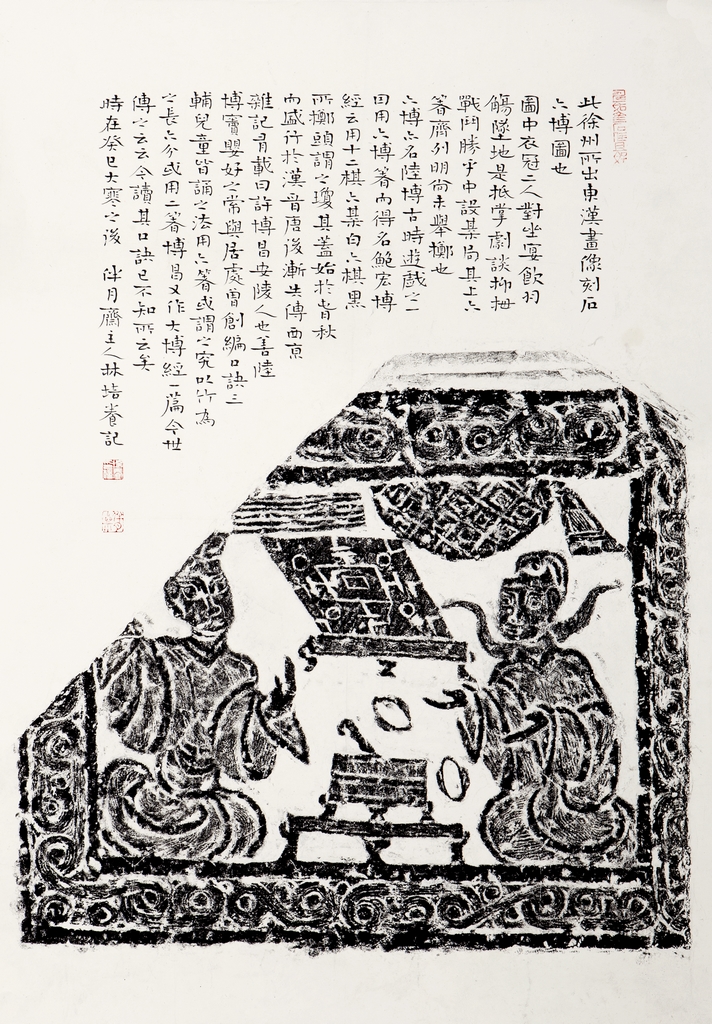 此徐州所出東漢畫像刻石
六博圖也
圖中衣冠二人對坐宴飲羽
觴墜地是抵掌劇談抑拇
戰鬥勝乎中設棊局其上六
箸齊列明尚未舉擲也
六博亦名陸博古時遊戲之一
因用六博箸而得名鮑宏博
經云用十二棋六棊白六棋黑
所擲頭謂之瓊其蓋始於春秋
而盛行於漢晉唐後漸失傳西京
雜記有載曰許博昌安陵人也善陸
博竇嬰好之常與居處曾創編口訣三
輔兒童皆誦之法用六箸或謂之究以竹為
之長六分或用二箸博昌又作大博經一篇今世
傳之云云今讀其口訣已不知所云矣
時在癸巳大寒之後 伴月齋主人林培養記